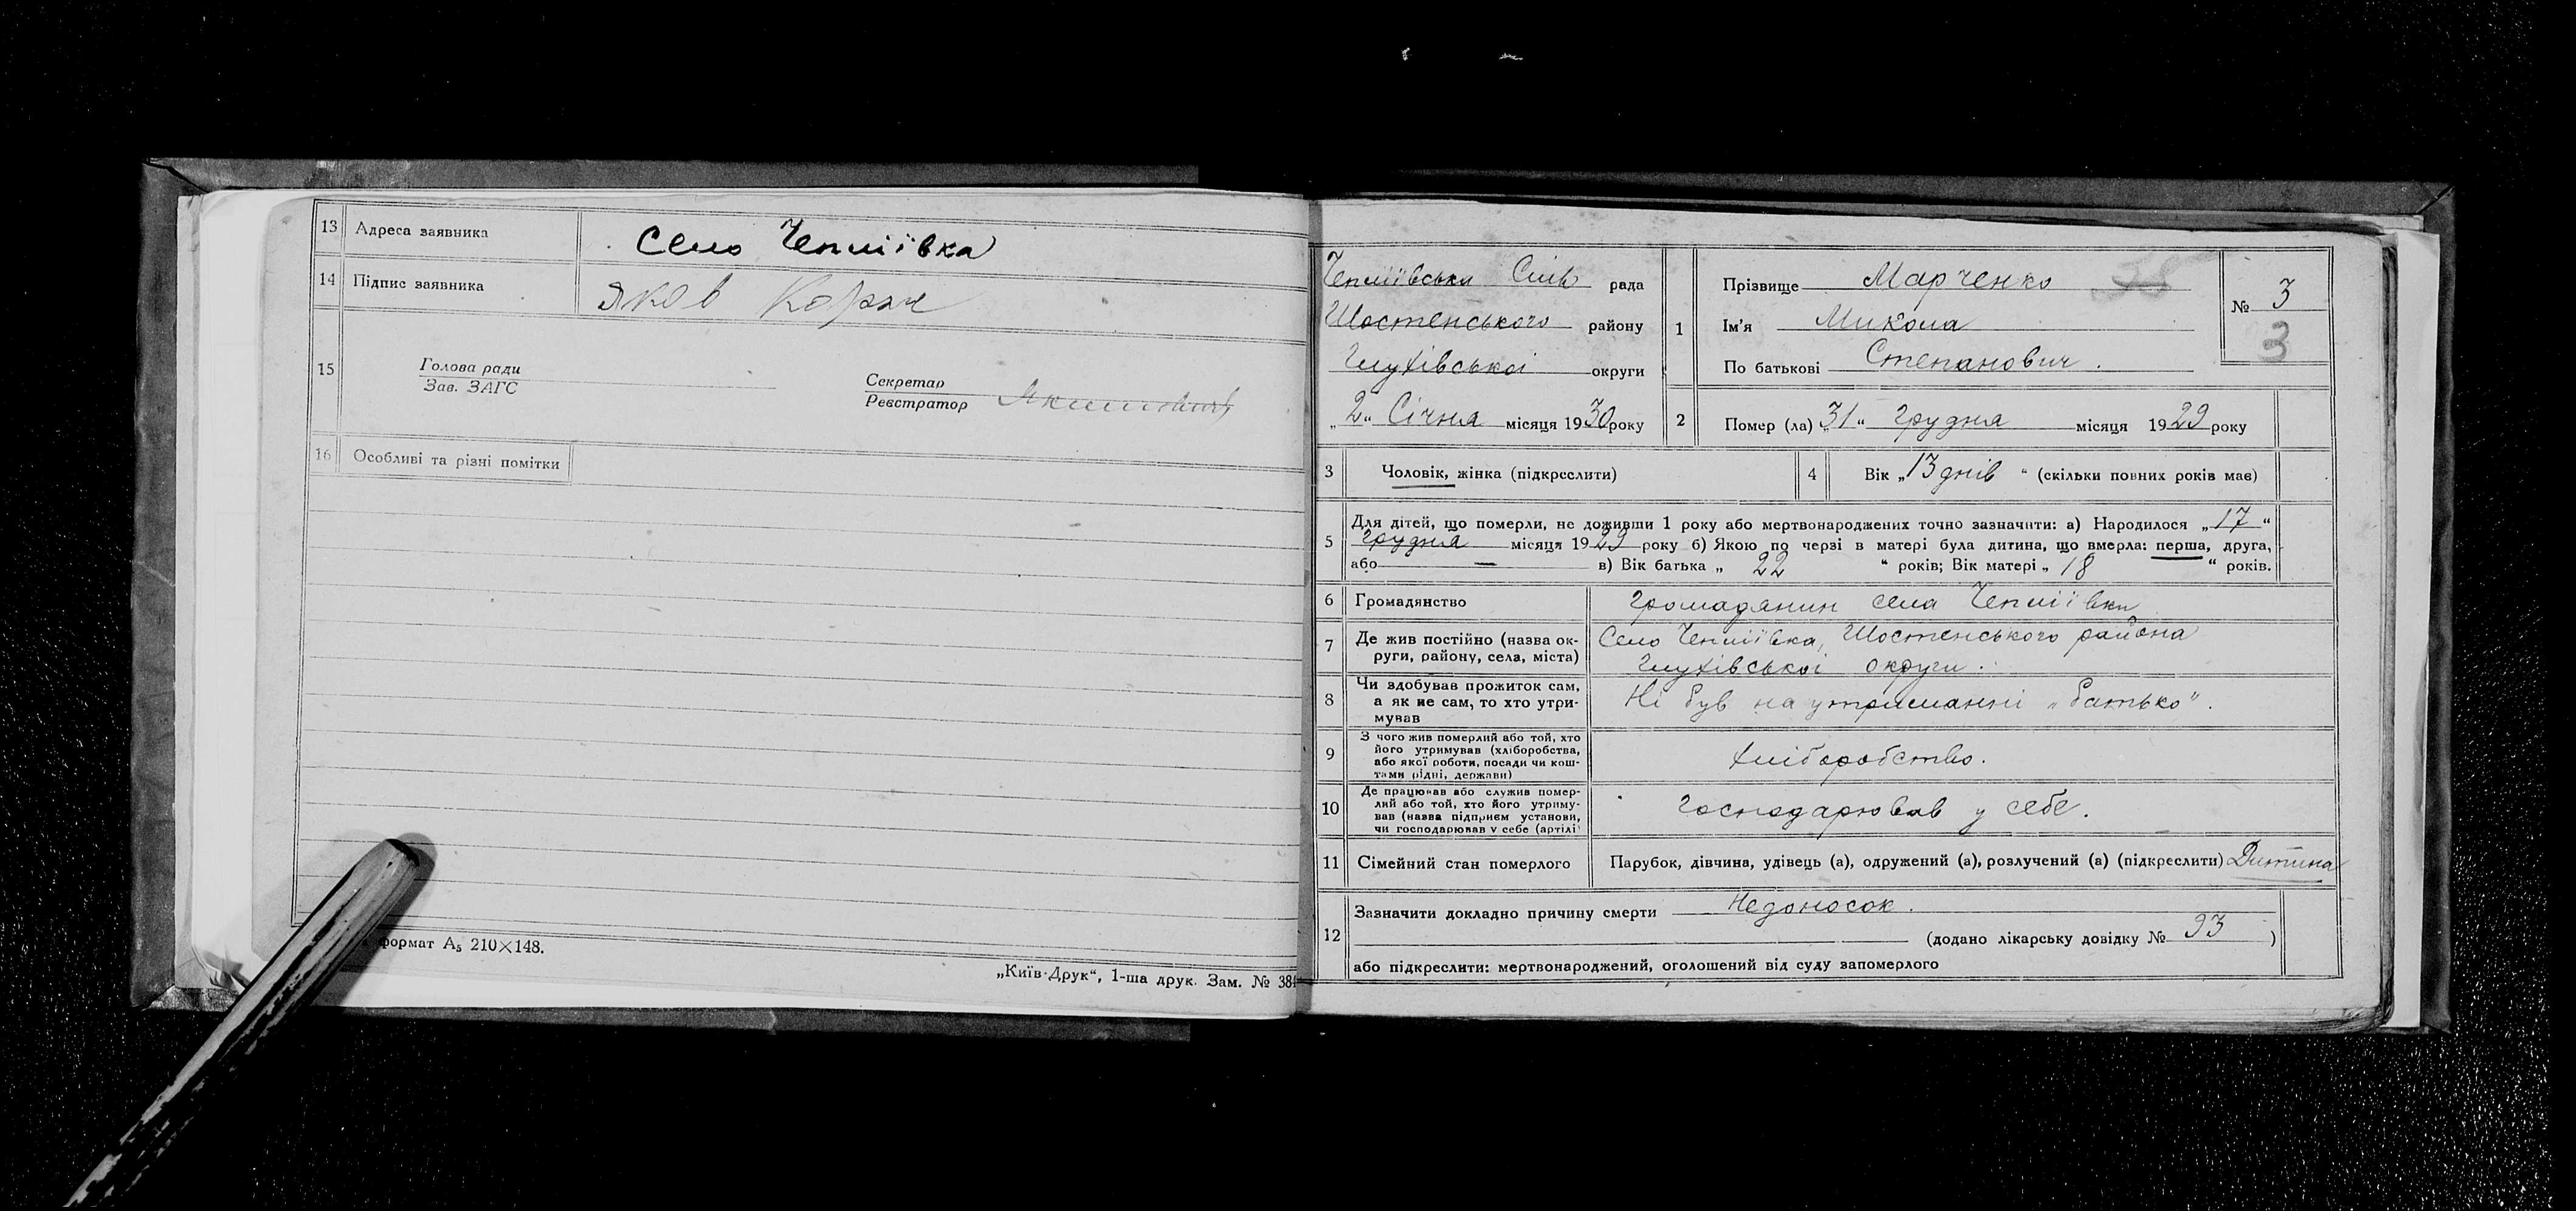 13 Адреса заявника Село Чепліївка
14 Підпис заявника Яков Корж
15 Голова ради
Зав. ЗАГС
Секретар
Реєстратор
16 Особливі та різні помітки
формат А5 210×148.
„Київ-Друк“, 1-ша друк. Зам. № 38
Чепліївська Сіль рада
Шостенського району
Глухівської округи
„2“ Січня місяця 1930 року
1 Прізвище Марченко
Ім’я Микола
По батькові Степанович.
№ 3
3
2 Помер (ла) „31“ Грудня місяця 1929 року
3 Чоловік, жінка (підкреслити)
4 Вік „13 днів“ (скільки повних років має)
5 Для дітей, що померли, не доживши 1 року або мертвонароджених точно зазначити: а) Народилося „17“
Грудня місяця 1929 року б) Якою по черзі в матері була дитина, що вмерла: перша, друга,
або — в) Вік батька „22“ років; Вік матері „18“ років.
6 Громадянство Громадянин села Чепліївки
7 Де жив постійно (назва ок-
руги, району, села, міста)
Село Чепліївка, Шостенського района
Глухівської округи.
8 Чи здобував прожиток сам,
а як не сам, то хто утри-
мував
Ні був на утриманні „батько“.
9 З чого жив померлий або той, хто
його утримував (хліборобства,
або якої роботи, посади чи кош-
тами рідні, держави)
Хліборобство.
10 Де працював або служив помер-
лий або той, хто його утриму-
вав (назва підприєм установи,
чи господарював у себе (артілі
Господарював у себе.
11 Сімейний стан померлого Парубок, дівчина, удівець (а), одружений (а), розлучений (а) (підкреслити) Дитина
12 Зазначити докладно причину смерти Недоносок.
(додано лікарську довідку № 93)
або підкреслити: мертвонароджений, оголошений від суду запомерлого